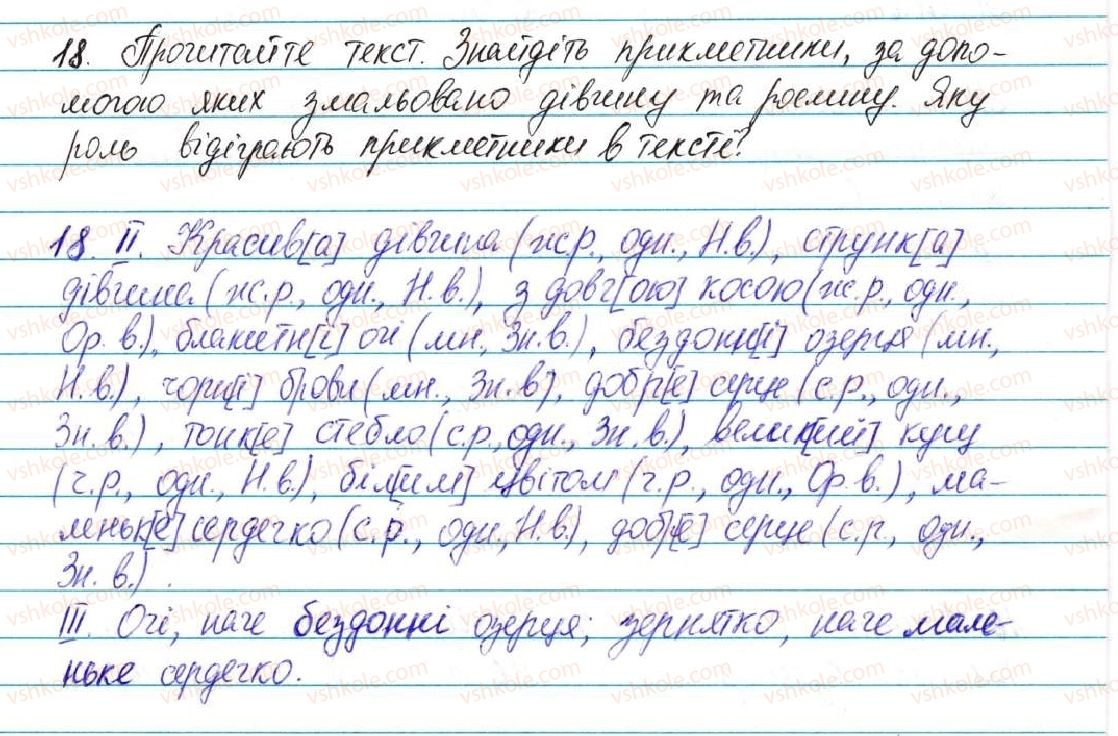 18. Прочитайте текст. Знайдіть прикметники, за допо-
могою яких змальовано дівчину та рослину. Яку
роль відіграють прикметники в тексті?
18. II. Красив[а] дівчина (ж.р., одн., Н.в.), струнк[а]
дівчина (ж.р., одн., Н.в.), з довг[ою] косою (ж.р., одн.,
Ор. в.), блакитн[і] очі (мн., Зн.в.), бездонн[і] озерця (мн.,
Н.в.), чорн[і] брови (мн., Зн.в), добр[е] серце (с.р., одн.,
Зн. в.), тонк[е] стебло (с.р., одн., Зн.в.), велик[ий] кущ
(ч.р., одн., Н.в.), біл[им] цвітом (ч.р., одн., Ор.в.), ма-
леньк[е] сердечко (с.р., одн., Н.в.), добр[е] серце (с.р., одн.,
Зн. в.).
III. Очі, наче бездонні озерця; зернятко, наче мале-
ньке сердечко.